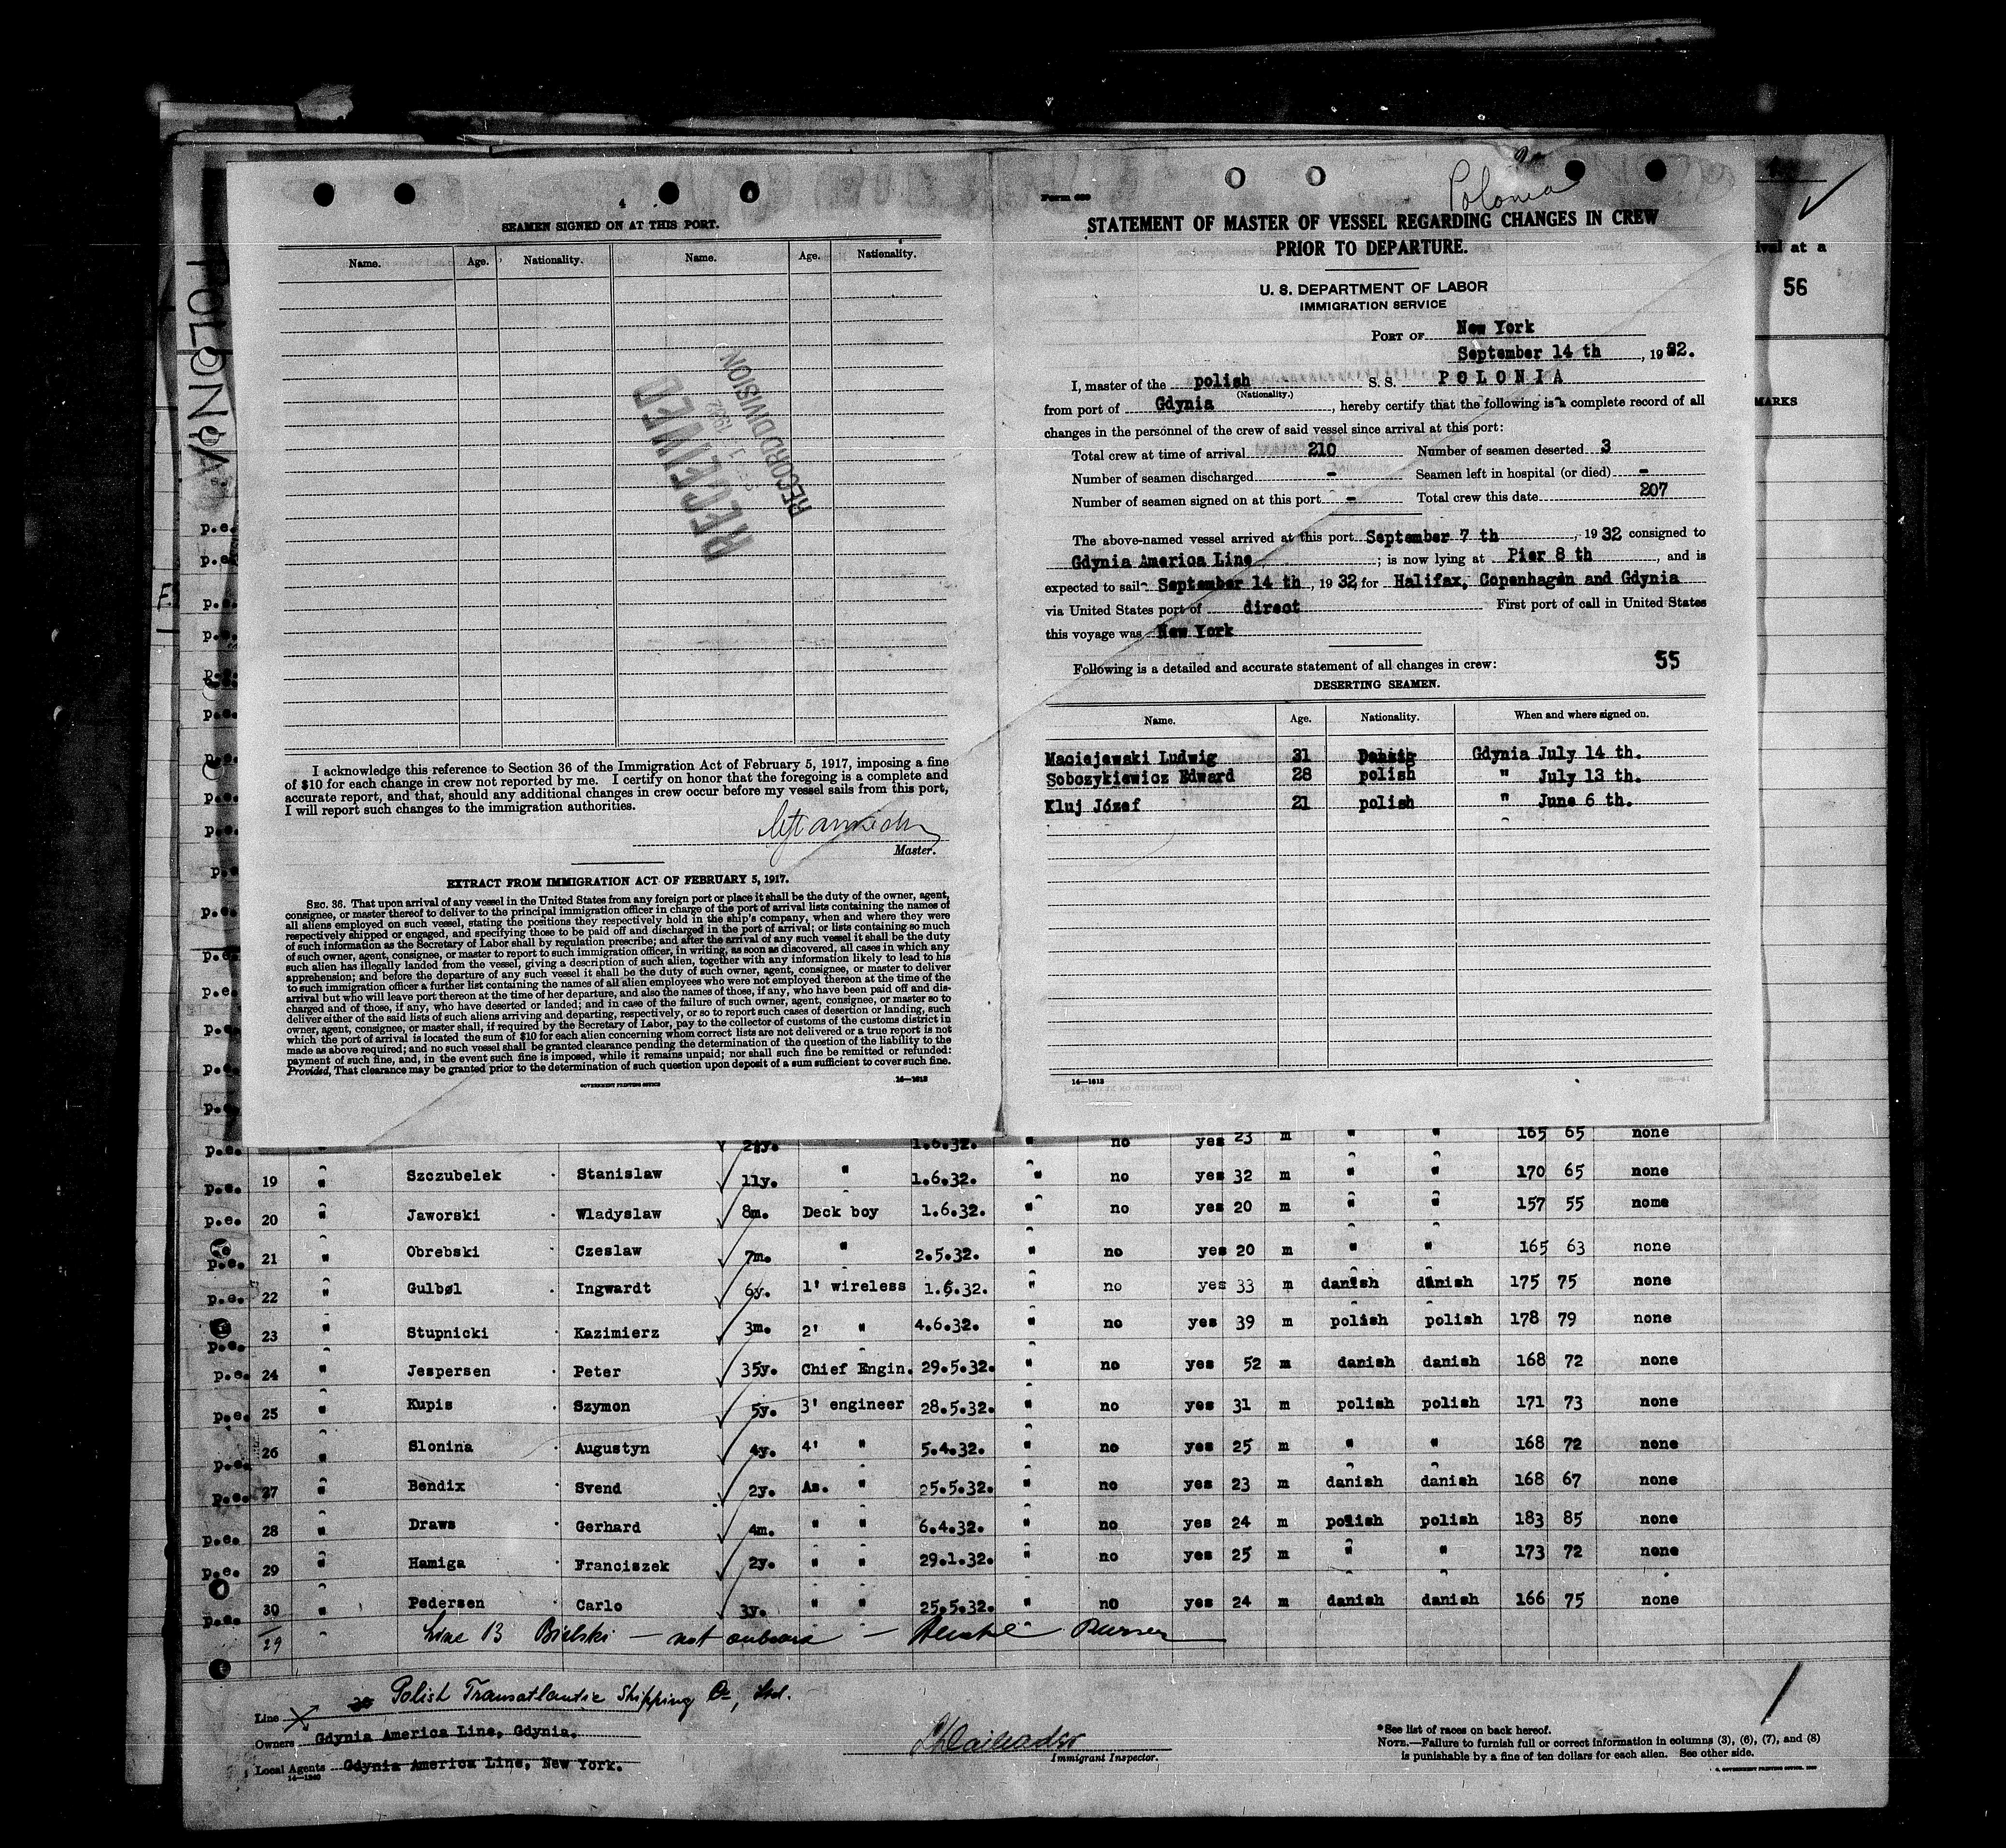 POLONIA
4
SEAMEN SIGNED ON AT THIS PORT.
Name. Age. Nationality. Name. Age. Nationality.
RECEIVED
1932
RECORD DIVISION
I acknowledge this reference to Section 36 of the Immigration Act of February 5, 1917, imposing a fine
of $10 for each change in crew not reported by me. I certify on honor that the foregoing is a complete and
accurate report, and that, should any additional changes in crew occur before my vessel sails from this port,
I will report such changes to the immigration authorities.
Master.
EXTRACT FROM IMMIGRATION ACT OF FEBRUARY 5, 1917.
SEC. 36. That upon arrival of any vessel in the United States from any foreign port or place it shall be the duty of the owner, agent,
consignee, or master thereof to deliver to the principal immigration officer in charge of the port of arrival lists containing the names of
all aliens employed on such vessel, stating the positions they respectively hold in the ship's company, when and where they were
respectively shipped or engaged, and specifying those to be paid off and discharged in the port of arrival; or lists containing so much
of such information as the Secretary of Labor shall by regulation prescribe; and after the arrival of any such vessel it shall be the duty
of such owner, agent, consignee, or master to report to such immigration officer, in writing, as soon as discovered, all cases in which any
such alien has illegally landed from the vessel, giving a description of such alien, together with any information likely to lead to his
apprehension; and before the departure of any such vessel it shall be the duty of such owner, agent, consignee, or master to deliver
to such immigration officer a further list containing the names of all alien employees who were not employed thereon at the time of the
arrival but who will leave port thereon at the time of her departure, and also the names of those, if any, who have been paid off and dis-
charged and of those, if any, who have deserted or landed; and in case of the failure of such owner, agent, consignee, or master so to
deliver either of the said lists of such aliens arriving and departing, respectively, or so to report such cases of desertion or landing, such
owner, agent, consignee, or master shall, if required by the Secretary of Labor, pay to the collector of customs of the customs district in
which the port of arrival is located the sum of $10 for each alien concerning whom correct lists are not delivered or a true report is not
made as above required; and no such vessel shall be granted clearance pending the determination of the question of the liability to the
payment of such fine, and, in the event such fine is imposed, while it remains unpaid; nor shall such fine be remitted or refunded:
Provided, That clearance may be granted prior to the determination of such question upon deposit of a sum sufficient to cover such fine.
GOVERNMENT PRINTING OFFICE 14—1813
Polonia
Form 689
STATEMENT OF MASTER OF VESSEL REGARDING CHANGES IN CREW
PRIOR TO DEPARTURE.
U. S. DEPARTMENT OF LABOR
IMMIGRATION SERVICE
PORT OF New York
September 14 th, 1932.
I, master of the polish S. S. POLONIA
(Nationality.)
from port of Gdynia, hereby certify that the following is a complete record of all
changes in the personnel of the crew of said vessel since arrival at this port:
Total crew at time of arrival 210 Number of seamen deserted 3
Number of seamen discharged - Seamen left in hospital (or died) -
Number of seamen signed on at this port - Total crew this date 207
The above-named vessel arrived at this port September 7 th, 1932 consigned to
Gdynia America Line; is now lying at Pier 8 th, and is
expected to sail September 14 th, 1932, for Halifax, Copenhagen and Gdynia
via United States port of direct First port of call in United States
this voyage was New York
Following is a detailed and accurate statement of all changes in crew: 55
DESERTING SEAMEN.
Name. Age. Nationality. When and where signed on.
Maciejewski Ludwig 31 Danzig Gdynia July 14 th.
Sobczykiewicz Edward 28 polish " July 13 th.
Kluj Józef 21 polish " June 6 th.
14—1813
ival at a
56
MARKS
p.e. 1.6.32. " no yes 23 m " " 165 65 none
p.e. 19 " Szczubelek Stanislaw 11y. " 1.6.32. " no yes 32 m " " 170 65 none
p.e. 20 " Jaworski Wladyslaw 8m. Deck boy 1.6.32. " no yes 20 m " " 157 55 nome
p.e. 21 " Obrebski Czeslaw 7m. " 2.5.32. " no yes 20 m " " 165 63 none
p.e. 22 " Gulbøl Ingwardt 6y. 1' wireless 1.6.32. " no yes 33 m danish danish 175 75 none
p.e. 23 " Stupnicki Kazimierz 3m. 2' " 4.6.32. " no yes 39 m polish polish 178 79 none
p.e. 24 " Jespersen Peter 35y. Chief Engin. 29.5.32. " no yes 52 m danish danish 168 72 none
p.e. 25 " Kupis Szymon 5y. 3' engineer 28.5.32. " no yes 31 m polish polish 171 73 none
p.e. 26 " Slonina Augustyn 4y. 4' " 5.4.32. " no yes 25 m " " 168 72 none
p.e. 27 " Bendix Svend 2y. As. " 25.5.32. " no yes 23 m danish danish 168 67 none
p.e. 28 " Draws Gerhard 4m. " " 6.4.32. " no yes 24 m polish polish 183 85 none
p.e. 29 " Hamiga Franciszek 2y. " " 29.1.32. " no yes 25 m " " 173 72 none
p.e. 30 " Pedersen Carlo 3y. " " 25.5.32. " no yes 24 m danish danish 166 75 none
29 " Line 13 Bielski — not onboard — Purser
Polish Transatlantic Shipping Co, Ltd.
Line
Owners Gdynia America Line, Gdynia.
Local Agents Gdynia America Line, New York.
14—1240
Immigrant Inspector.
*See list of races on back hereof.
NOTE.—Failure to furnish full or correct information in columns (3), (6), (7), and (8)
is punishable by a fine of ten dollars for each alien. See other side.